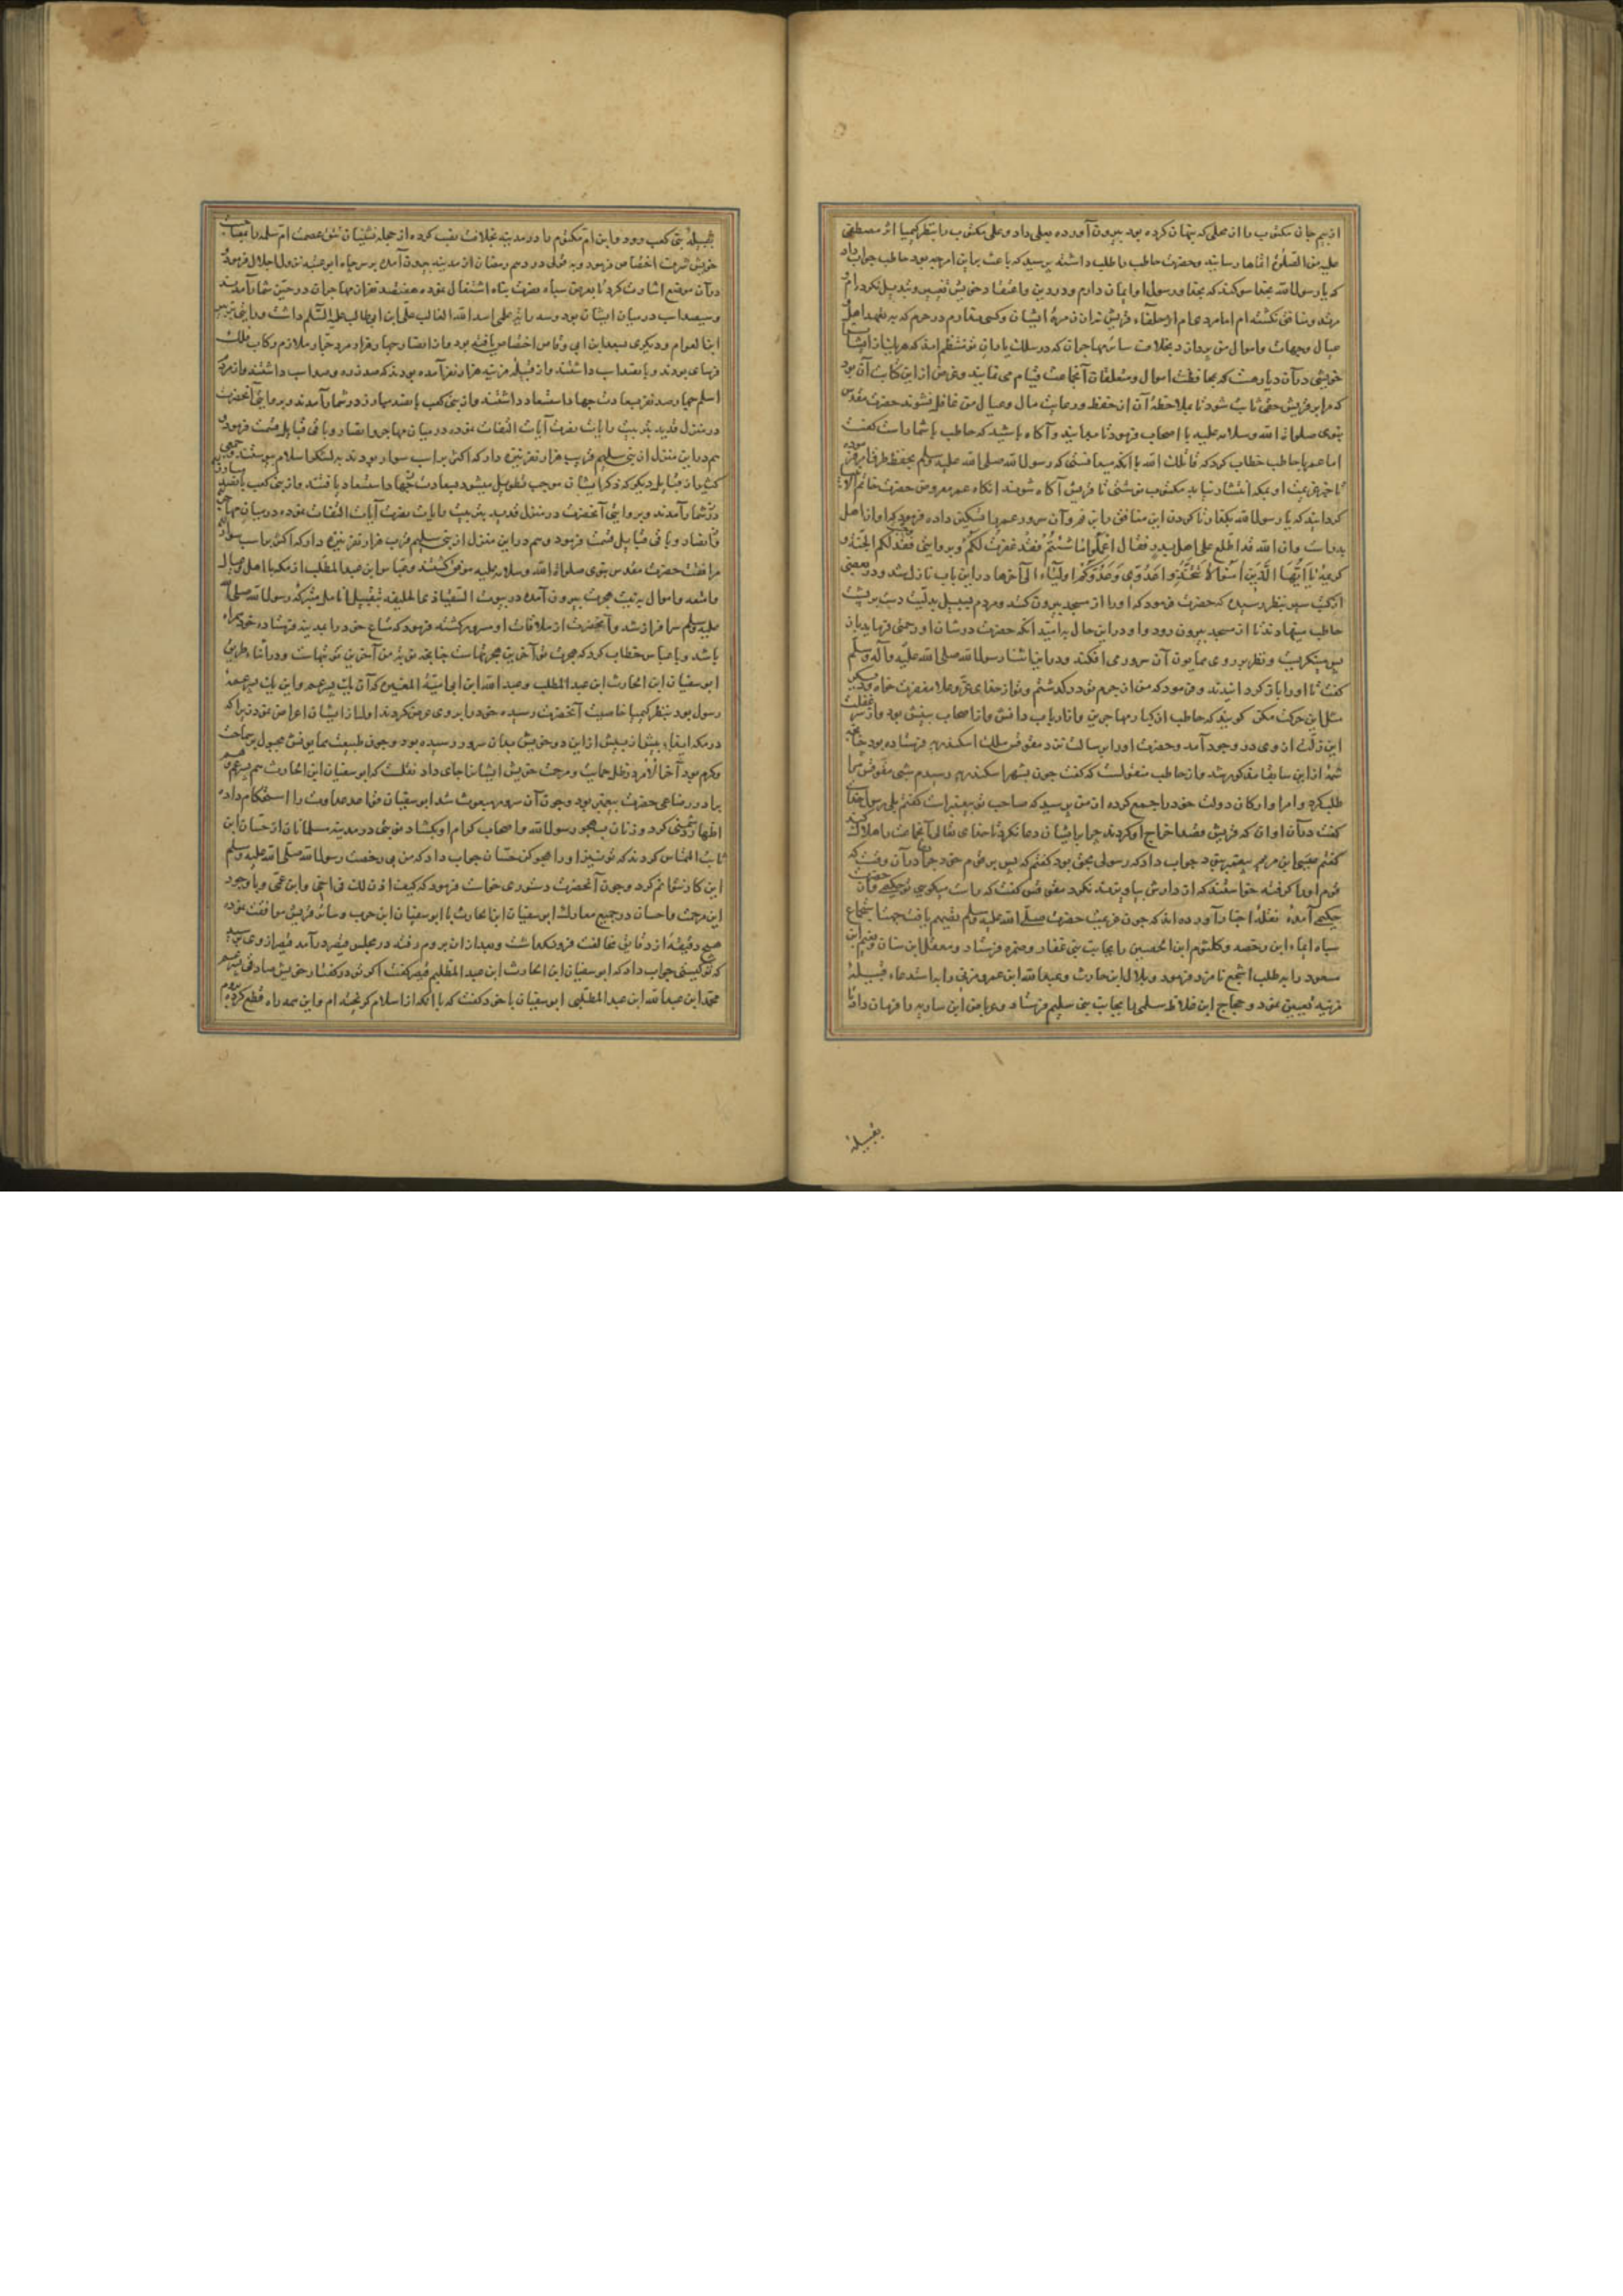 از بیم جان مکتوب را از محلی که پنهان کرده بود بیرون آورده بعلی داد و علی مکتوب را بنظر کیمیا اثر مصطفی
علیه من الصلوة انماها رسانید و حضرت حاطب را طلب داشته پرسید که باعث بر این امر چه بود حاطب جواب داد
که یا رسول الله بخدا سوکند که بخدا و رسول او ایمان دارم و در دین و اعتقاد خویش تغییر و تبدیل نکرده‌ام
مرتد و منافق نکشته‌ام اما مردی‌ام از حلفاء قریش نه از زمره ایشان و کسی ندارم در حرم که به تعهد اهل
عیال و جهات و اموال من پردازد بخلاف سائر مهاجران که در سلک یاران تو منتظم‌اند که هر یک از ایشان
خویشی در آن دیار هست که بمحافظت اموال و متعلقات آنجاعت قیام می نمایند و غرض از این کتابت آن بود
که مرا بر قریش حقی ثابت شود تا بملاحظه آن از حفظ و رعایت مال و عیال من غافل نشوند حضرت مقدس
نبوی صلواة الله و سلامه علیه با اصحاب فرمود تا بدانید و آکاه باشید که حاطب با شما راست کفت
اما عمر با حاطب خطاب کرد که قاتلک الله با آنکه میدانستی که رسول الله صلی الله علیه وسلم بحفظ طرق امر فرموده
تا خبر عزیمت او بمکه انتشار نیابد مکتوب نوشتی تا قریش آکاه شوند انکاه عمر معروض حضرت خاتم الانبیا
کردانید که یا رسول الله بکذار تا کردن این منافق را بزنم و آن سرور عمر را تسکین داده فرمود که او از اهل
بدر است وان الله قد اطلع علی اهل بدر فقال اعملوا ما شئتم فقد غفرت لکم و بروایتی فقد لکم الجنة و
کریمه یا ایها الذین آمنوا لا تتخذوا عدوی وعدوکم اولیاء الی آخرها در این باب نازل شد و در بعضی
از کتب سیر بنظر رسیده که حضرت فرمود که او را از مسجد بیرون کنند و مردم دست بر پشت
حاطب مینهادند تا از مسجد بیرون رود و او در این حال برامید آنکه حضرت در شان او رحمتی فرماید باز
پس مینکریست و نظر بر روی همایون آن سرور می افکند ودر این اثنا رسول الله صلی الله علیه وآله وسلم
کفت تا او را باز کردانیدند و فرمود که من از جرم تو در کذشتم و تو از خدای عز و علا مغفرت خواه و دیگر
مثل این حرکت مکن کویند که حاطب از کبار مهاجرین و از ارباب دانش و از اصحاب بینش بود و از سر غفلت
این زلت از وی در وجود آمد و حضرت او را برسالت نزد مقوقس ملک اسکندریه فرستاده بود چنانچه
شمه از این سابقا مذکور شد و از حاطب منقولست که کفت چون بشهر اسکندریه رسیدم شبی مقوقس مرا
طلب کرد و امرا و ارکان دولت خود را جمع کرده از من پرسید که صاحب تو پیغمبر است کفتم بلی رسول خداست
کفت در آن اوان که قریش قصد اخراج او کردند چرا بر ایشان دعا نکرد تا خدای تعالی آنجاعت را هلاک کند
کفتم عیسی ابن مریم پیغمبر بود جواب داد که رسولی بحق بود کفتم که پس بر قوم خود چرا در آن وقت که
قوم او را کرفته خواستند که از دارش بیاویزند نکرد مقوقس کفت که راست میکویی تو حکیمی و از نزد
حکیمی آمده نقله اخبار آورده‌اند که چون عزیمت حضرت صلی الله علیه وسلم تصمیم یافت جهت اجتماع
سپاه ایماء ابن رخصه و کلثوم ابن الحصین را بجانب بنی غفار و ضمره فرستاد و معقل ابن سنان و نعیم ابن
مسعود را به طلب اشجع نامزد فرمود و بلال ابن حارث و عبد الله ابن عمرو مزنی را به استدعاء قبیله
مزینه تعیین نمود و حجاج ابن علاط سلمی را بجانب بنی سلیم فرستاد و عرباض ابن ساریه را فرمان داد تا
بقبیله
بقبیله بنی کعب رود و ابن ام مکتوم را در مدینه بخلافت نصب کرده از جمله نشینان تتق عصمت ام سلمه را بمصاحبت
خویش شرف اختصاص فرمود و به قولی در دهم رمضان از مدینه بیرون آمده بر سر چاه ابو عتبه نزول اجلال فرمود
در آن موضع اشارت کرد تا بعرض سپاه نصرت پناه اشتغال نموده هفتصد نفر از مهاجران در حیز شمار آمدند
و سیصد اسب در میان ایشان بود و سه رایت یکی اسد الله الغالب علی ابن ابی طالب علیه السلام داشت
ابن العوام و دیکری بسعد ابن ابی وقاص اختصاص یافته بود و از انصار چهار هزار مرد جرار ملازم رکاب فلک
فرسای بودند و پانصد اسب داشتند و از قبیله مزینه هزار نفر آمده بودند که صد زره و صد اسب داشتند و از مردم
اسلم چهارصد نفر بسعادت جهاد استسعاد داشتند و از بنی کعب پانصد مبارز در شمار آمدند و بروایتی آنحضرت
در منزل قدید بترتیب رایات نصرت آیات التفات نموده در میان مهاجر و انصار و باقی قبایل قسمت فرمود و
هم در این منزل از بنی سلیم قریب هزار نفر نیزه دار که اکثر بر اسب سوار بودند به لشکر اسلام پیوستند و جمعی
کثیر از قبایل دیگر که ذکر ایشان موجب تطویل میشود بسعادت جهاد استسعاد یافتند و از بنی کعب پانصد مبارز
در شمار آمدند و بروایتی آنحضرت در منزل قدید بترتیب رایات نصرت آیات التفات نموده در میان مهاجر
و انصار و باقی قبایل قسمت فرمود و هم در این منزل از بنی سلیم قرب هزار نفر نیزه دار که اکثر بر اسب سوار
مرافقت حضرت مقدس نبوی صلواة الله و سلامه علیه موفق کشتند و عباس ابن عبد المطلب از مکه با اهل و عیال
و اتمعه و اموال به نیت هجرت بیرون آمده در بیوت السقیا و ذی الحلیفه بتقبیل انامل متبرکه رسول الله صلی الله
علیه وسلم سرافراز شد و آنحضرت از ملاقات او مسرور کشته فرمود که متاع خود را بمدینه فرستاده خود همراه
باشد و با عباس خطاب کرد که هجرت تو آخرین هجرتهاست چنانچه نبوت من آخرین نبوتهاست و در اثناء طریق
ابو سفیان ابن الحارث ابن عبد المطلب و عبد الله ابن ابی امیة المغیره که آن یک پسر عم و این یک پسر عمه
رسول بود بنظر کیمیا خاصیت آنحضرت رسیده خود را بر وی عرض کردند اولا از ایشان اعراض نمود زیرا که
در مکه ایذاء بیش از پیش از این دو خویش بدان سرور رسیده بود و چون طبیعت همایونش مجبول بر سماحت
وکرم بود آخر الامر در ظل حمایت و مرحمت خویش ایشانرا جای داد نقلست که ابو سفیان ابن الحارث هم پسر عم و هم
برادر رضاعی حضرت پیغمبر بود و چون آن سرور مبعوث شد ابو سفیان قواعد عداوت را استحکام داده
اظهار دشمنی کرد و زبان بهجو رسول الله و اصحاب کرام او بکشاد نوبتی در مدینه مسلمانان از حسان ابن
ثابت التماس کردند که تو نیز او را هجو کن حسان جواب داد که من بی رخصت رسول الله صلی الله علیه وسلم
این کار نتوانم کرد و چون آنحضرت دستوری خواست فرمود که کیف اذن لک فی اخی وابن عمی و با وجود
این مرحمت و احسان در جمیع معارک ابو سفیان ابن الحارث با ابو سفیان ابن حرب و سائر قریش موافقت نموده
هیچ دقیقه از دقایق مخالفت فرو نکذاشت و بعد از آن بروم رفته در مجلس قیصر درآمد قیصر از وی پرسید
که تو کیستی جواب داد که ابو سفیان ابن الحارث ابن عبد المطلبم قیصر کفت اکر تو در کفتار خویش صادقی پسر عم
محمد ابن عبد الله ابن عبد المطلبی ابو سفیان با خود کفت که با آنکه از اسلام کریخته‌ام و این همه راه قطع کرده‌ام